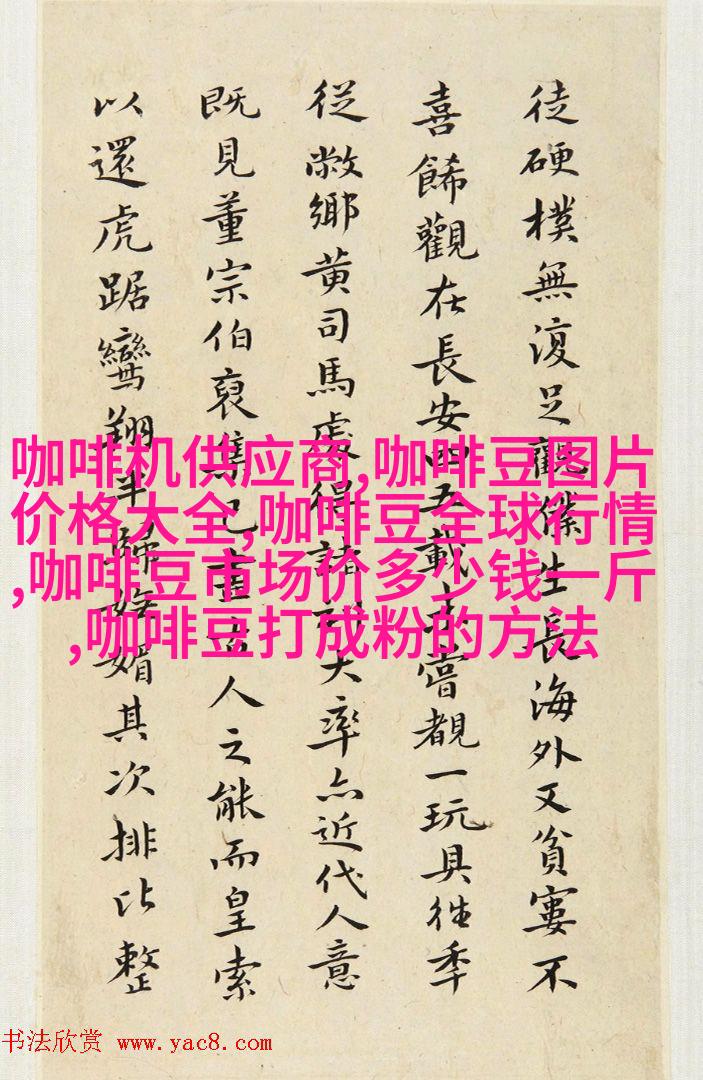 徒硬樸無復足觀僕生長海外又貧窶不
喜餙觀在長安四五載嘗覩一玩具往季
從敝鄉黄司馬處得大率亦近代人意
既見董宗伯裒集已人之能而皇索
以還虎踞鸞翔半歸媚其次排比整
咖啡机供应商,咖啡豆图片
价格大全,咖啡豆全球行情
,咖啡豆市场价多少钱一斤
,咖啡豆打成粉的方法
书法欣赏 www.yac8.com